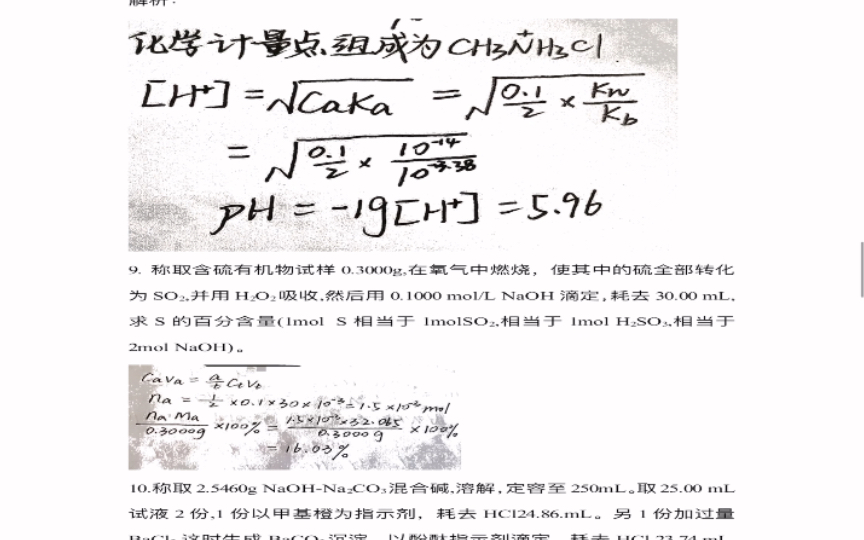 解析：
化学计量点组成为CH3N⁺H3Cl
[H⁺] = √CaKa = √0.1/2 × Kw/Kb
= √0.1/2 × 10⁻¹⁴/10⁻³·³⁸
pH = -lg[H⁺] = 5.96
9. 称取含硫有机物试样 0.3000g,在氧气中燃烧，使其中的硫全部转化
为 SO₂,并用 H₂O₂ 吸收,然后用 0.1000 mol/L NaOH 滴定,耗去 30.00 mL,
求 S 的百分含量(1mol S 相当于 1molSO₂,相当于 1mol H₂SO₃,相当于
2mol NaOH)。
CaVa = a/b CbVb
na = 1/2 ×0.1×30×10⁻³=1.5×10⁻³mol
na·Ma/0.3000g ×100% = 1.5×10⁻³×32.065/0.3000g ×100%
= 16.03%
10.称取 2.5460g NaOH-Na₂CO₃混合碱,溶解,定容至 250mL。取 25.00 mL
试液 2 份,1 份以甲基橙为指示剂，耗去 HCl24.86.mL。另 1 份加过量
BaCl₂ 这时生成 BaCO₃ 沉淀，以酚酞指示剂滴定，耗去 HCl 23.74 mL